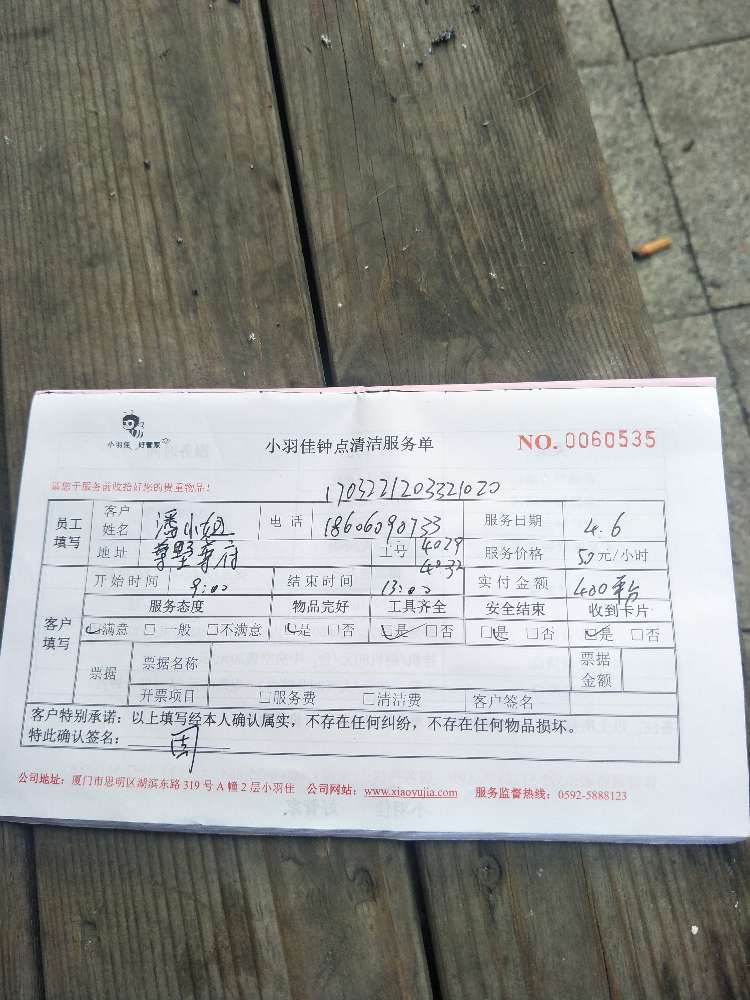 小羽佳 好管家
小羽佳钟点清洁服务单
NO. 0060535
请您于服务前收拾好您的贵重物品!
1703221203321020
员工填写 客户姓名 潘小姐 电话 18606090733 服务日期 4.6
地址 府 工号 4029 4032 服务价格 50元/小时
开始时间 9:00 结束时间 13:00 实付金额 400
客户填写 服务态度 物品完好 工具齐全 安全结束 收到卡片
☑满意 □一般 □不满意 ☑是 □否 ☑是 □否 ☑是 □否 ☑是 □否
票据 票据名称 票据金额
开票项目 □服务费 □清洁费 客户签名
客户特别承诺:以上填写经本人确认属实,不存在任何纠纷,不存在任何物品损坏。
特此确认签名:
公司地址:厦门市思明区湖滨东路 319 号 A 幢 2 层小羽佳 公司网站:www.xiaoyujia.com 服务监督热线:0592-5888123